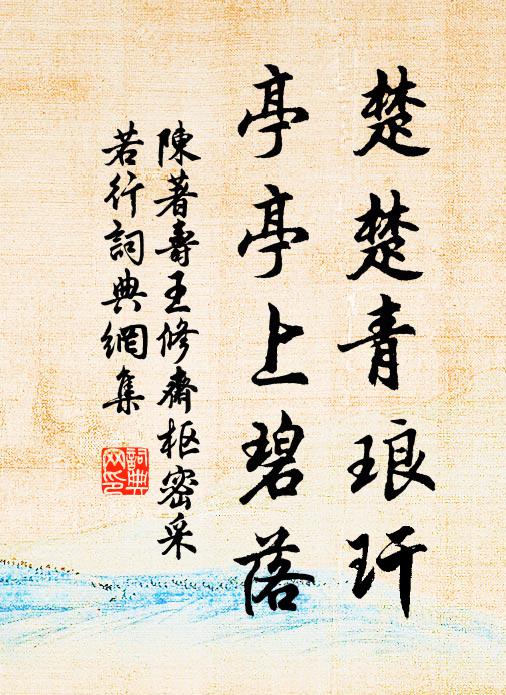 楚楚青琅玕
亭亭上碧落
陳著壽王修齋枢密采
若行詞典網集
詞典网印